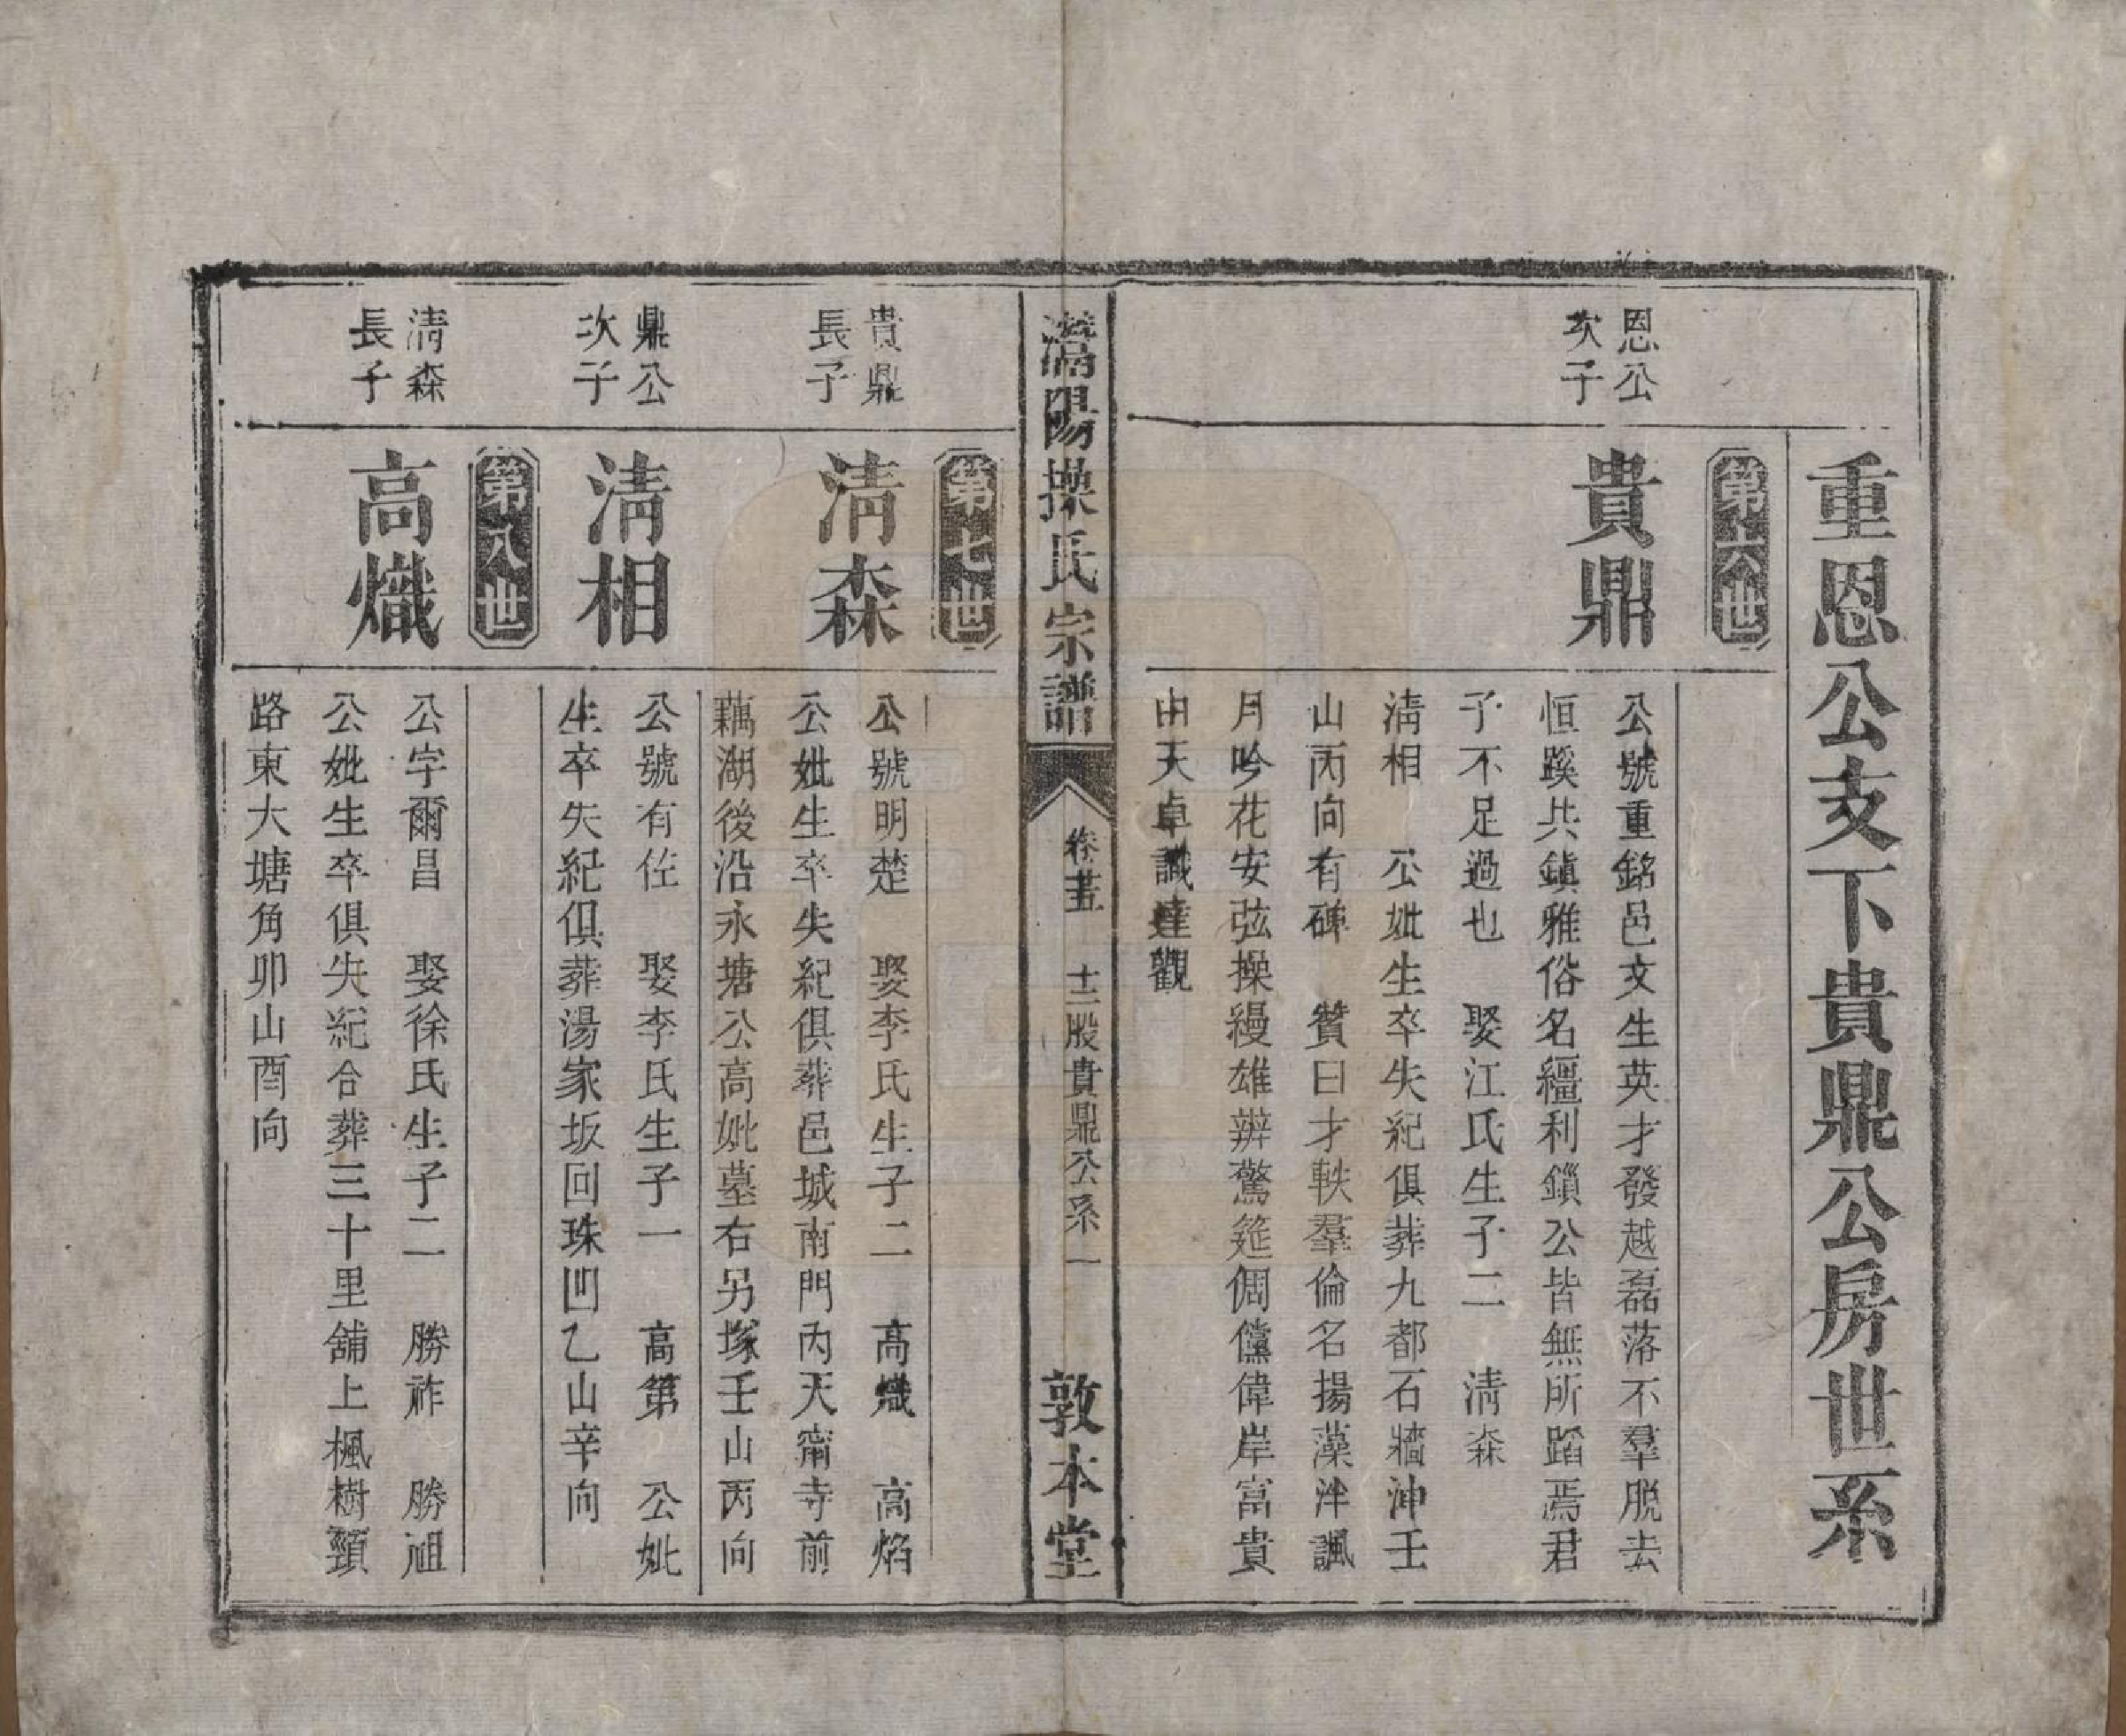 重恩公支下貴鼎公房世系
第六世
恩公
次子
貴鼎
公號重銘邑文生英才發越磊落不羣脱去
恒蹊共鎮雅俗名繮利鎖公皆無所蹈焉君
子不足過也　娶江氏生子二　淸森
淸相　公妣生卒失紀俱葬九都石牆沖壬
山丙向有碑　贊曰才軼羣倫名揚藻泮諷
月吟花安弦操縵雄辨驚筵倜儻偉岸富貴
由天卓識達觀
灊陽操氏宗譜
卷
十二股貴鼎公系一
敦本堂
第七世
貴鼎
長子
淸森
公號明楚　娶李氏生子二　高熾　高焰
公妣生卒失紀俱葬邑城南門內天甯寺前
藕湖後沿永塘公高妣墓右另塚壬山丙向
鼎公
次子
淸相
公號有佐　娶李氏生子一　高第　公妣
生卒失紀俱葬湯家坂回珠凹乙山辛向
第八世
淸森
長子
高熾
公字爾昌　娶徐氏生子二　勝祚　勝祖
公妣生卒俱失紀合葬三十里舖上楓樹頸
路東大塘角卯山酉向